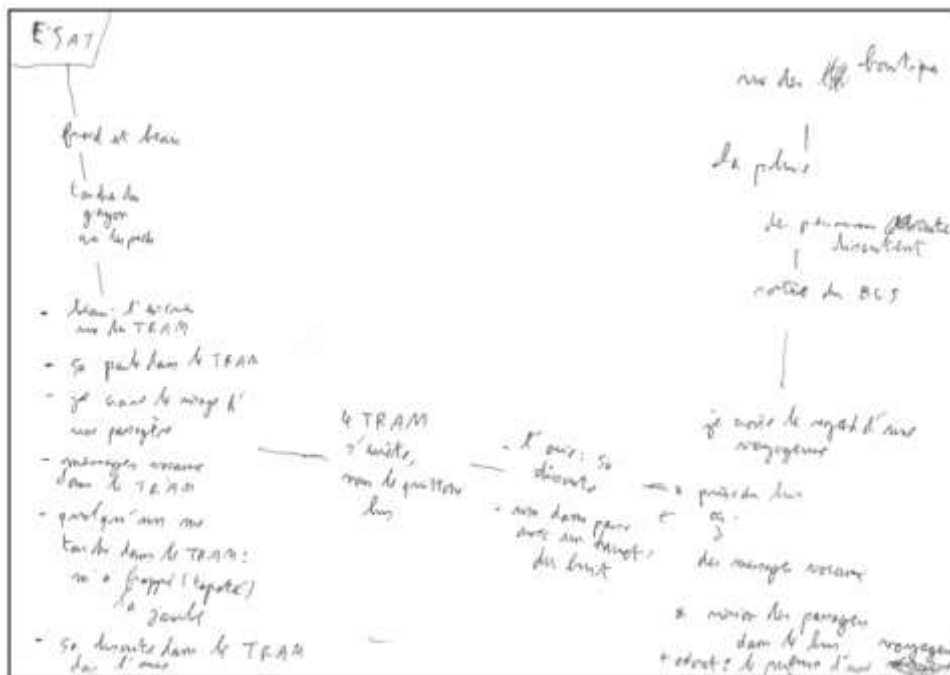 ESAT
froid et beau
tondre du
gazon
beau : l'
sur le TRAM
- ça parle dans le TRAM
- je croise le visage d'
une passagère
- messages vocaux
dans le TRAM
- quelqu'un me
touche dans le TRAM :
m'a frappé (tapoté)
la jambe
- ça discute dans le TRAM
le TRAM
s'arrête,
nous le quittons
- l'ouïe : ça
discute
- une dame passe
avec un
du bruit
rue des boutiques
la pluie
des personnes
discutent
sortie du BUS
je croise le regard d'une
voyageuse
* prise du bus
et
des messages vocaux
* vision des passagers
dans le bus voyageuse
+ odorat : le parfum d'une